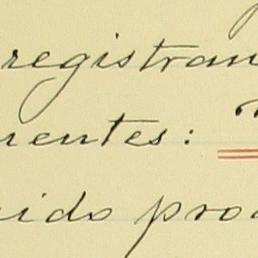 registran
rentes:
eido pro